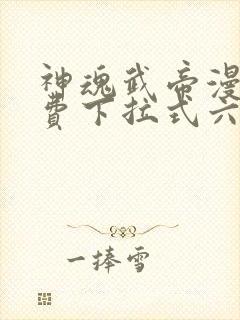 神魂武帝漫
費下拉式六
一捧雪